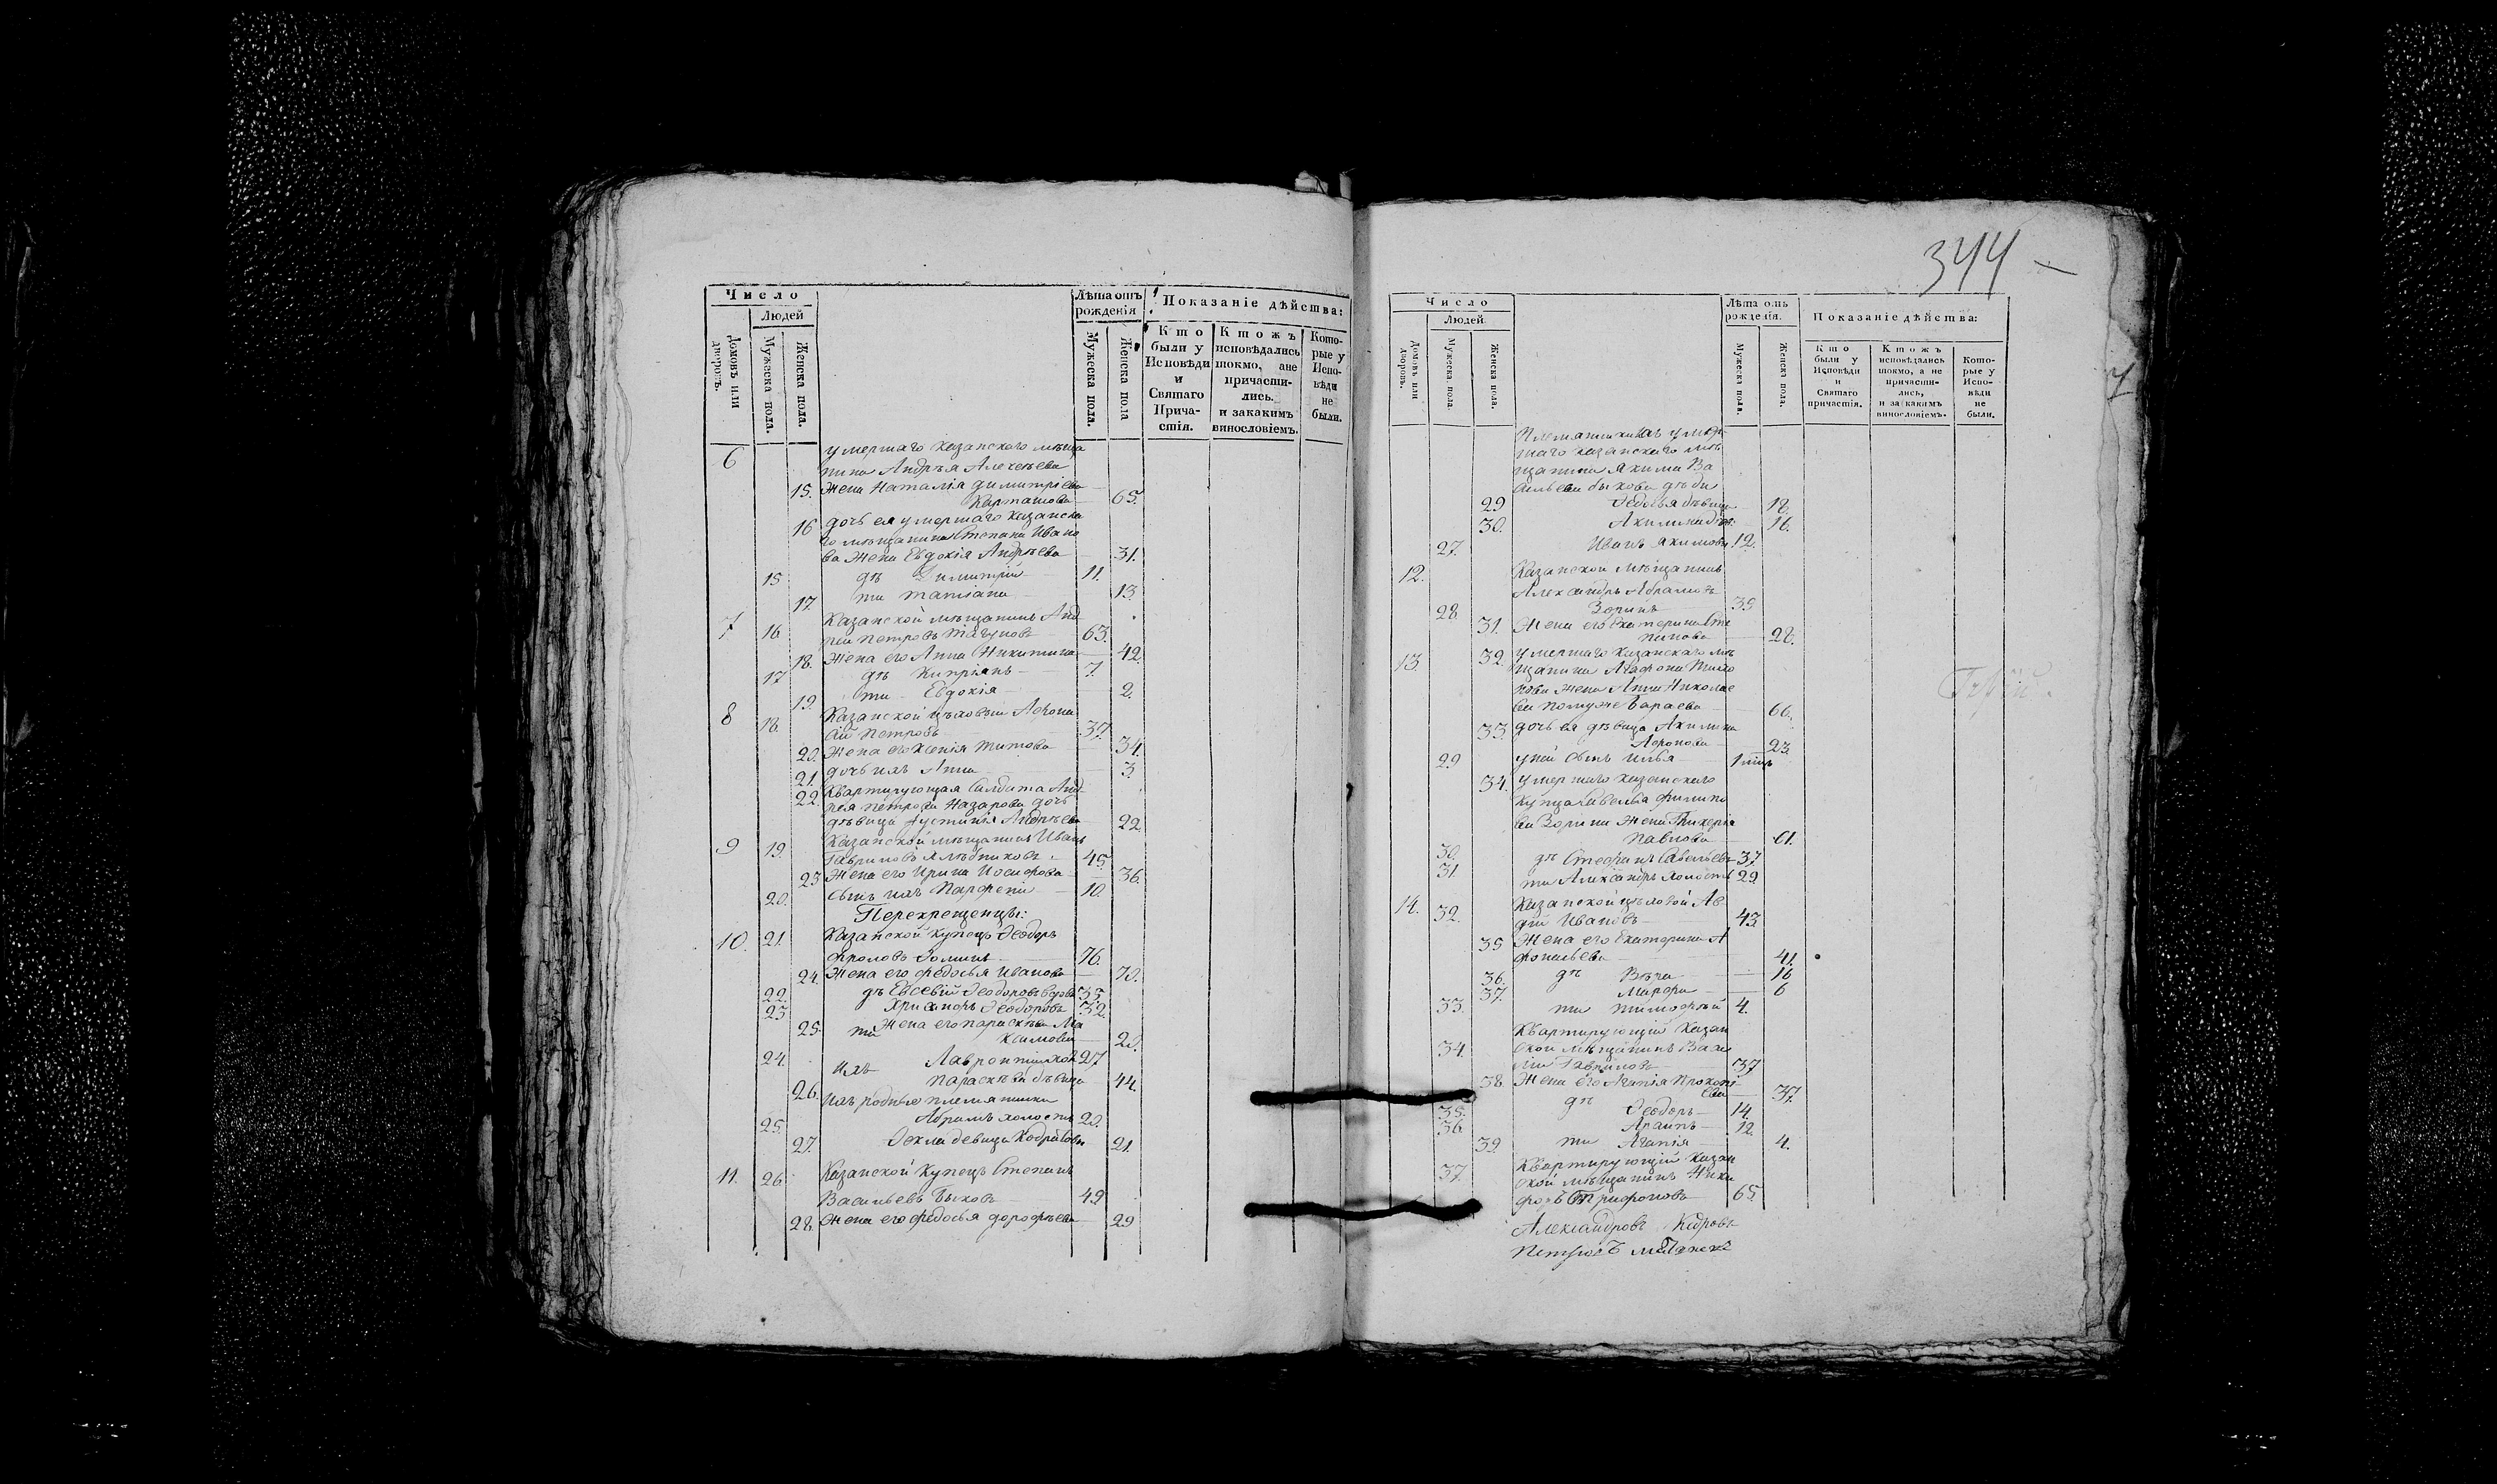 344
Число
Людей
Домовъ или дворовъ.
Мужеска пола.
Женска пола.
Лѣта отъ рожденія
Мужеска пола.
Женска пола
Показаніе дѣйства:
Кто были у Исповѣди и Святаго Прича-стія.
Ктожъ исповѣдались токмо, ане причасти-лись. и закакимъ винословіемъ.
Кото-рые у Испо-вѣди не были.
6 умершаго Казанскаго мѣща
нина Андрѣя Алексѣева
15. Жена Наталія Димитріева
Карташова 65.
16 дочь ея умершаго Казанска
го мѣщанина Степана Ивано
ва жена Евдокія Андрѣева 31.
15 дѣ Димитрій 11.
17 ти Татіана 13.
7 Казанской мѣщанинъ Анд
16 рей Петровъ 63.
18. Жена его Анна Никитина 42.
17 дѣ Кипріанъ 7.
19. ти Евдокія 2.
8 Казанской цѣховый Афона
18. сій Петровъ 37
20. Жена его Ксенія Титова 34.
21. дочь ихъ Анна 3.
22. Квартирующая Салдата Анд
рея Петрова Назарова дочь
дѣвица Іустинія Андрѣева 22.
9 19. Казанской мѣщанинъ Иванъ
Гавриловъ Хлѣбниковъ 45.
23 Жена его Ирина Иосифова 36.
20. сынъ ихъ Парфеній 10.
Перекрещенцы:
10. 21. Казанской Купецъ Ѳеодоръ
Фроловъ 76.
24. Жена его Федосья Иванова 70.
22. дѣ Евсевій Ѳеодоровъ вдовъ 35
23 Ѳеодоровъ 32.
25. ти Жена его Параскѣва Ма
ксимова 20.
24. ихъ Лаврентій 27
26. Параскѣва дѣвица 44.
ихъ родные племянники
25. Абрамъ холостъ 20.
27. Ѳекла девица 21.
11. 26. Казанской Купецъ Степанъ
Васильевъ Быковъ 49
28. Жена его Федосья Дорофѣева 29
Число
Людей
Домовъ или дворовъ.
Мужеска пола.
Женска пола.
Лѣта отъ рожденія.
Мужеска пола.
Женска пола.
Показаніе дѣйства:
Кто были у Исповѣди и Святаго причастія.
Ктожъ исповѣдались токмо, а не причасти-лись, и за какимъ винословіемъ.
Кото-рые у Испо-вѣди не были.
умер
шаго Казанскаго мѣ
щанина Якима Ва
сильева Быкова дѣти
29 Ѳедосья дѣвица 18.
30. Акилина 16.
27. Иванъ Якимовъ 12.
12. Казанской мѣщанинъ
Александръ Абрамовъ
28. Зоринъ 35
31. Жена его Екатерина Сте
панова 28.
13. 32. умершаго Казанскаго мѣ
щанина Агафона Тихо
нова жена Анна Николае
ва Бараева 66.
33. дочь ея дѣвица Акилина
23.
29 у ней сынъ Илья
34. умершаго Казанскаго
Купца Савелья Филипо
ва Зорина жена Гликерія
Павлова 61.
30. дѣ Стефанъ Савельевъ 37
31. ти Александръ холостъ 29.
14. 32. Казанской цѣховой Ав
дій Ивановъ 43.
35 Жена его Екатерина А
фонасьева 41.
36. дѣ Вѣра 16
37. Марфа 6
33. ти Тимофѣй 4.
Квартирующій Казан
34. ской мѣщанинъ Васи
лій Гавриловъ 37
38. Жена его Агапія Прокопі
ева 37.
35. дѣ Ѳеодоръ 14.
36. 12.
39. ти Агапія 4.
Квартирующій Казан
37. ской мѣщанинъ Ники
форъ Трифоновъ 65.
Александровъ
Петровъ